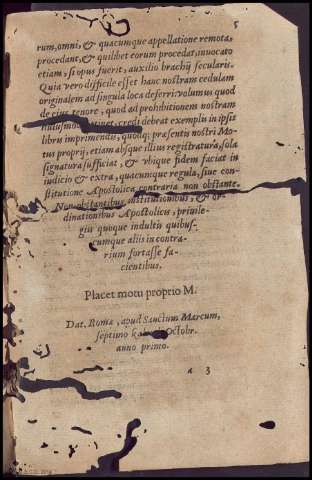 5
rum, omni, & quacumque appellatione remota,
procedant, & quilibet eorum procedat, inuocato
etiam, si opus fuerit, auxilio brachij secularis.
Quia verò difficile esset hanc nostram cedulam
originalem ad singula loca deferri: volumus quod
de eius tenore, quod ad prohibitionem nostram
credi debeat exemplis in ipsis
libris imprimendis, quodq; præsentis nostri Mo-
tus proprij, etiam absque illius registratura, sola
signatura sufficiat, & vbique fidem faciat in
iudicio & extra, quacumque regula, siue con-
stitutione Apostolica contraria non obstante.
Non obstantibus institutionibus, & or-
dinationibus Apostolicis, priuile-
gijs quoque indultis quibus-
cumque alijs in contra-
rium fortasse fa-
cientibus.
Placet motu proprio M.
Dat. Romæ, apud Sanctum Marcum,
septimo Octobr.
anno primo.
a 3